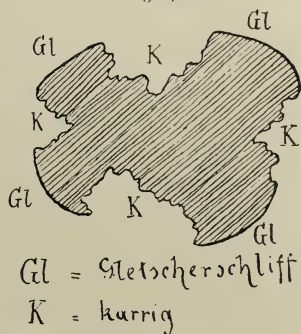 Gl K Gl
K K
Gl K Gl
Gl = Gletscherschliff
K = karrig